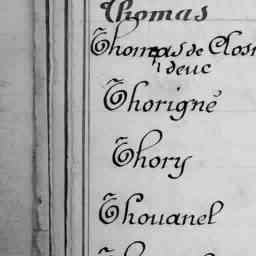 Thomas
Thomas de Closm
deuc
Thorigné
Thory
Thouanel